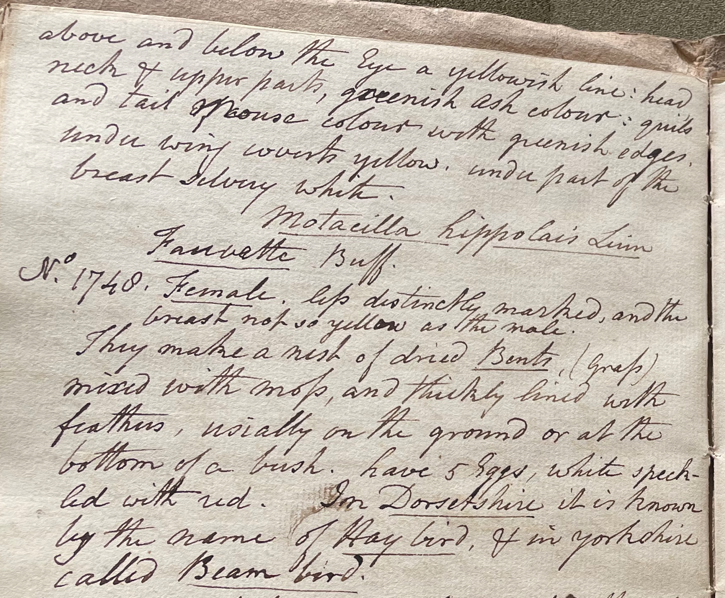 above and below the Eye a yellowish line: head
neck & upper parts, greenish ash colour: quills
and tail Mouse colour with greenish edges.
under wing coverts yellow. under part of the
breast Silvery white.
Motacilla hippolais Linn
Fauvette Buff.
No. 1748. Female. less distinctly marked, and the
breast not so yellow as the male.
They make a nest of dried Bents, (Grass)
mixed with moss, and thickly lined with
feathers, usually on the ground or at the
bottom of a bush. have 5 Eggs, white speck-
led with red. In Dorsetshire it is known
by the name of Hay bird, & in yorkshire
called Beam bird.